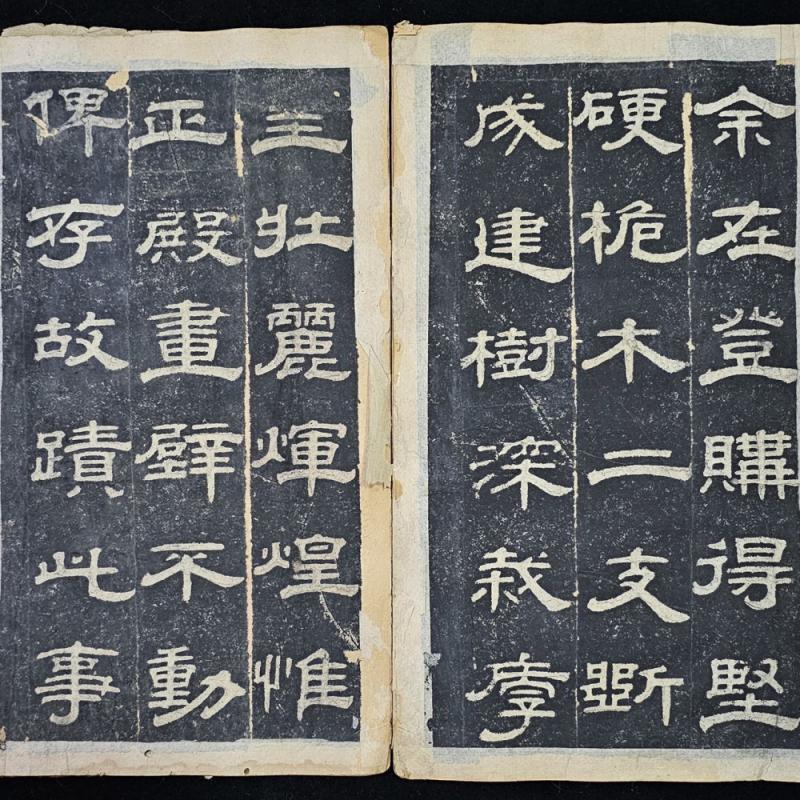 余在登購得堅
硬桅木二支斷
成建樹深栽厚
主壯麗煇煌惟
正殿畫壁不動
俾存故蹟此事